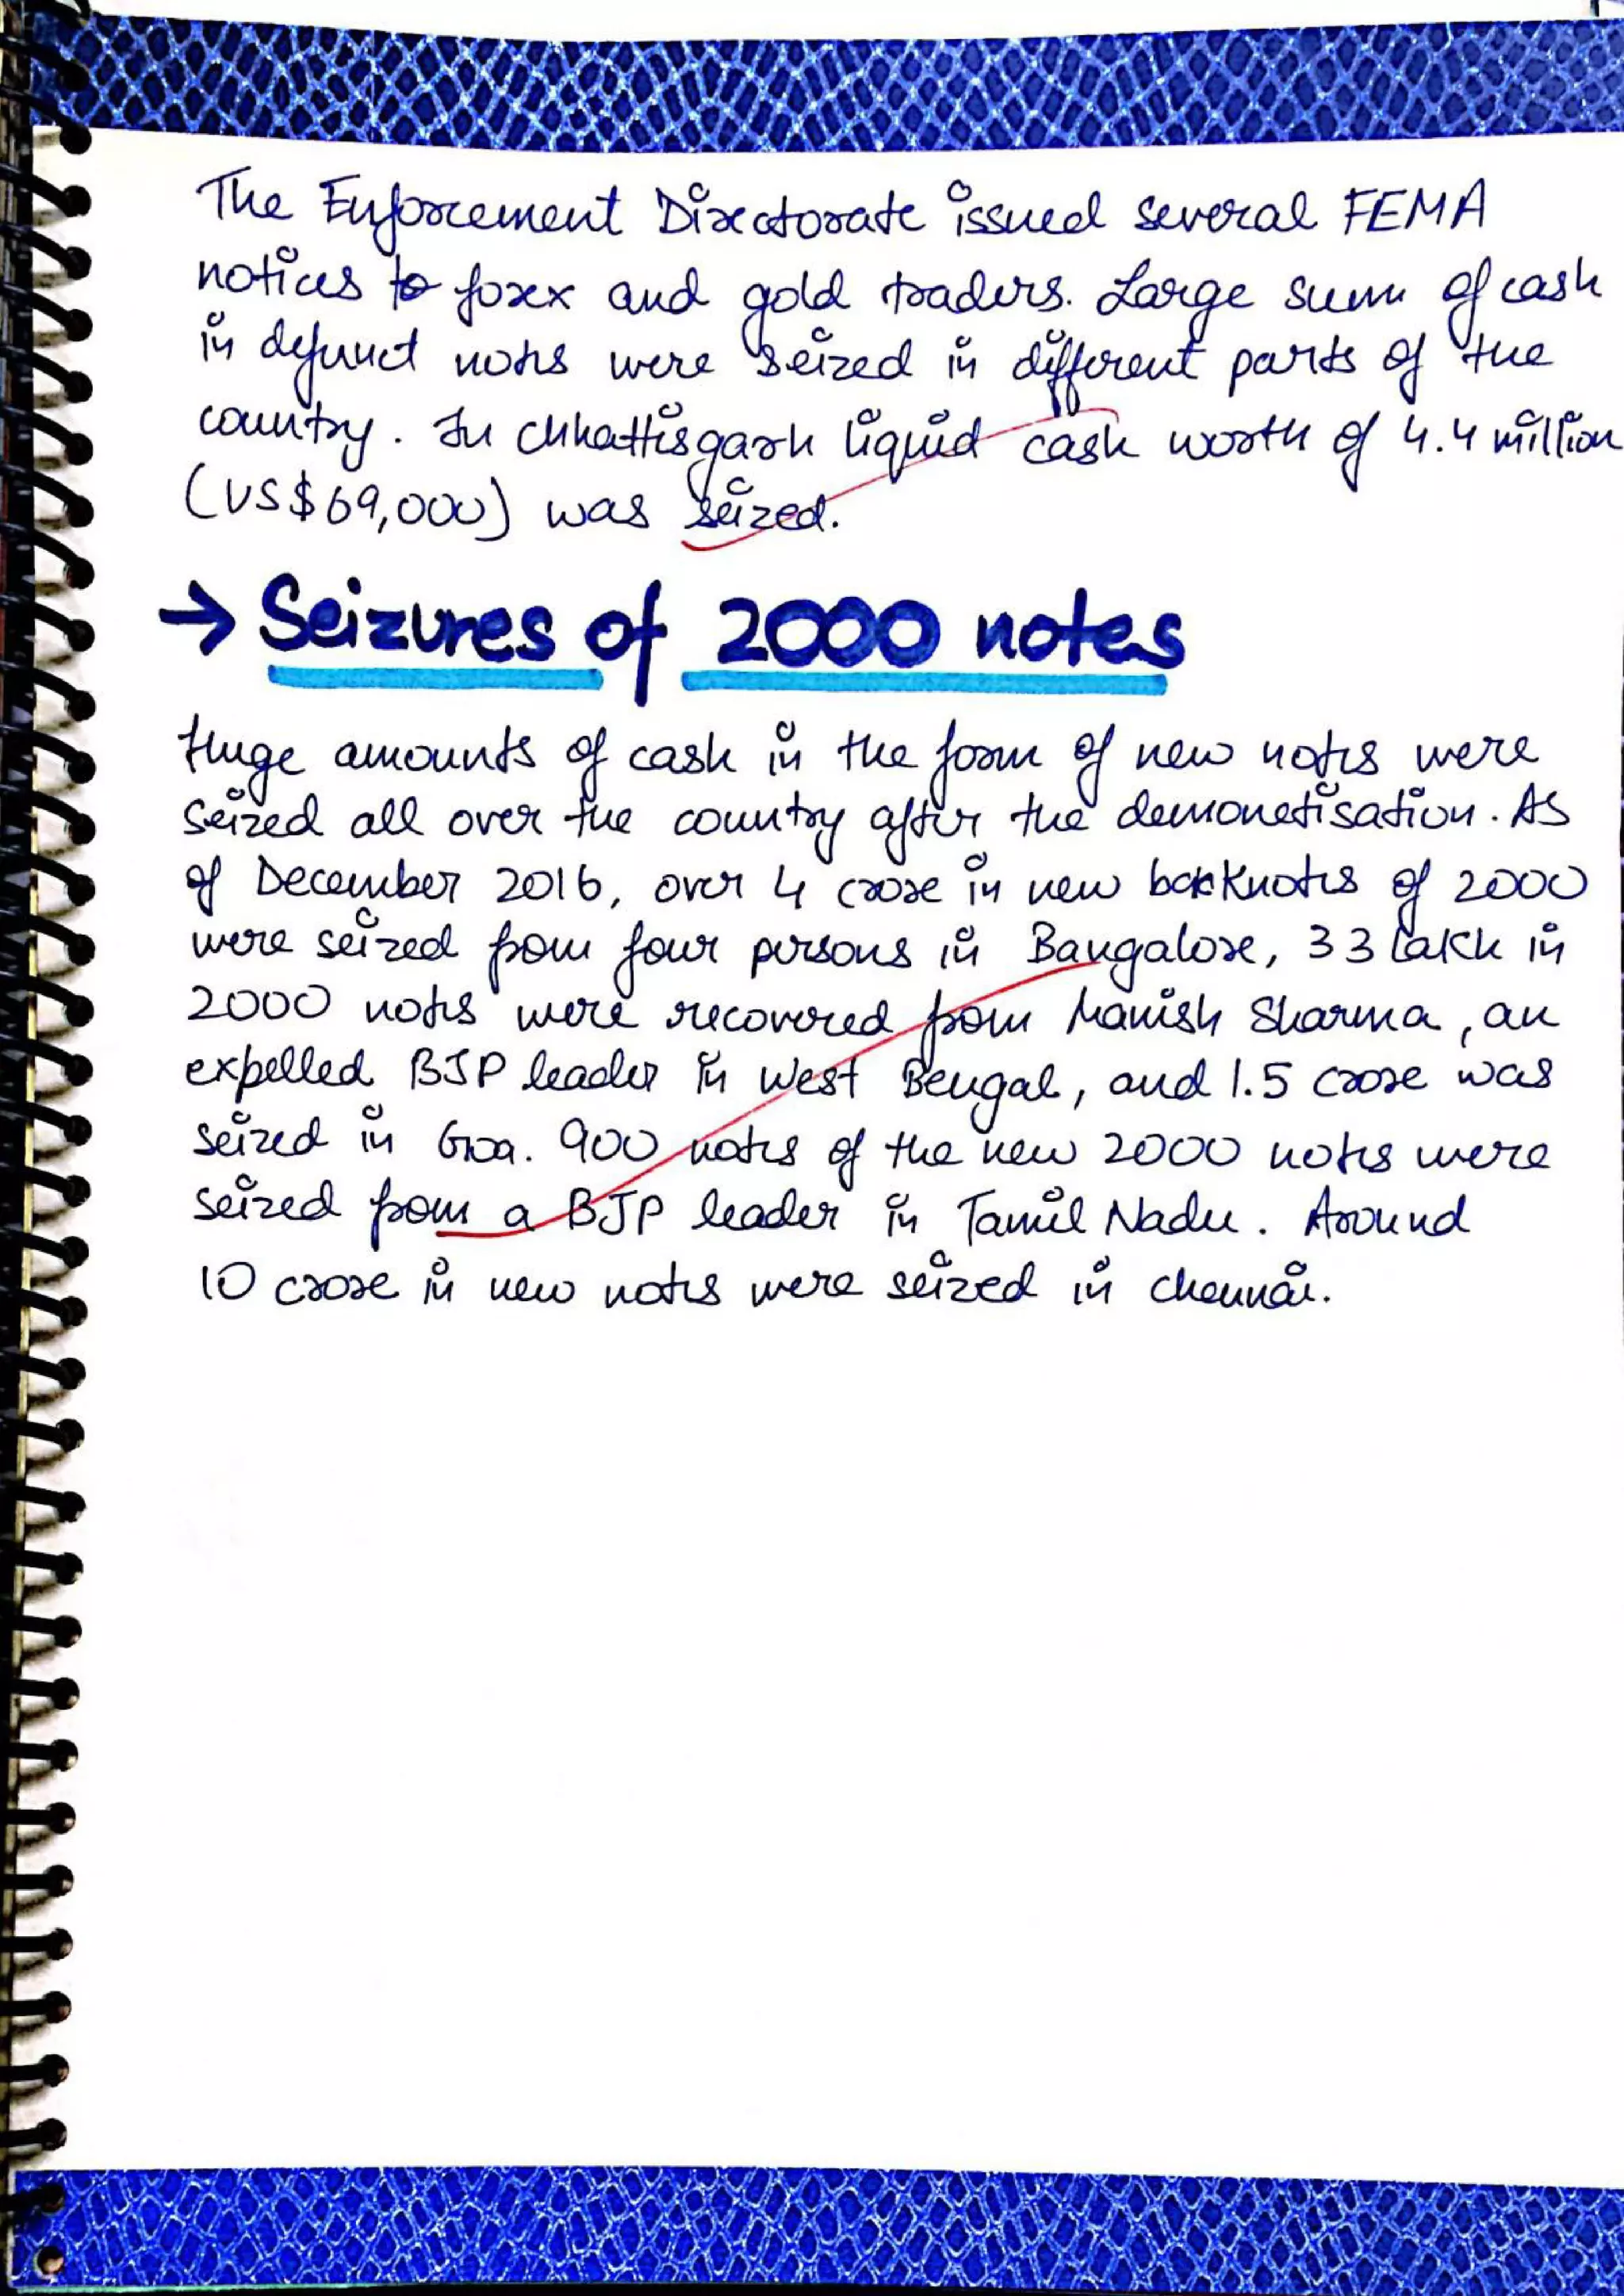 The Enforcement Directorate issued several FEMA
notices to forex and gold traders. Large sum of cash
in defunct notes were seized in different parts of the
country. In Chhattisgarh liquid cash worth of 4.4 million
(US$69,000) was seized.
→ Seizures of 2000 notes
Huge amounts of cash in the form of new notes were
seized all over the country after the demonetisation. As
of December 2016, over 4 crore in new banknotes of 2000
were seized from four persons in Bangalore, 33 lakh in
2000 notes were recovered from Manish Sharma, an
expelled BJP leader in West Bengal, and 1.5 crore was
seized in Goa. 900 notes of the new 2000 notes were
seized from a BJP leader in Tamil Nadu. Around
10 crore in new notes were seized in Chennai.